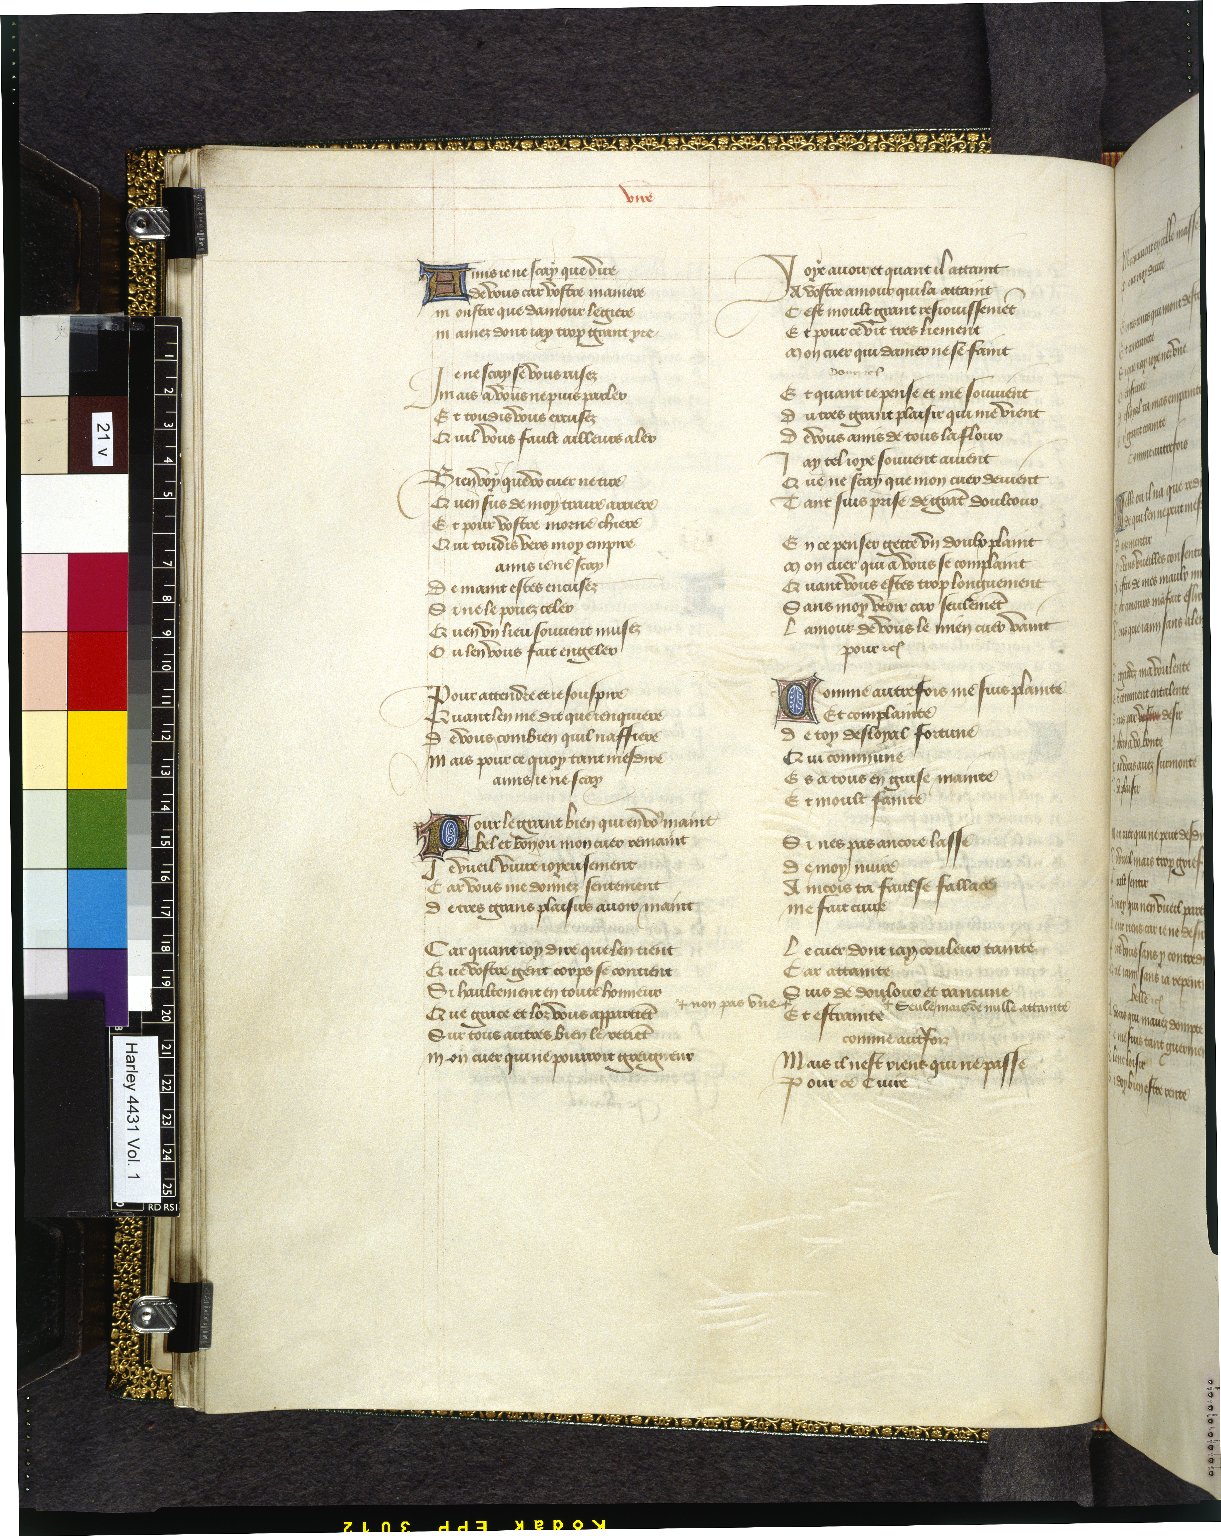 vire
Amis ie ne scay que dire
de vous car vostre maniere
monstre que damour legiere
mamez dont iay trop grant yre
Je ne scay se vous rusez
mais a vous ne puis parler
Et toudis vous excusez
Quil vous fault ailleurs aler
Bien voy que vo cuer ne tire
Quen sus de moy traire arriere
Et pour vostre morne chiere
Qui toudis vers moy empire
amis ie ne scay
De maint estes encusez
Si ne le pouez celer
Quen un lieu souvent musez
Ou len vous fait engeler
Pour attendre et ie souspire
Quant len me dit que ienquiere
De vous combien quil naffiere
Mais pour ce quoy tant mesdire
amis ie ne scay
Pour le grant bien qui en vo9 maint
bel et bon ou mon cuer remaint
Je vueil vivre ioyeusement
Car vous me donnez sentement
de tres grans plaisirs avoir maint
Car quant ioy dire que len tient
Que vostre gent corps se contient
Si haultement en toute honneur
Que grace et loz vous appartiet
Sur tous autres bien le retiet
mon cuer qui ne pourroit greigneur
Joye avoir et quant il attaint
A vostre amour qui la attaint
Cest moult grant resiouissemet
Et pour ce vit tres liement
Mon cuer qui damer ne se faint
Et quant ie pense et me souvient
Du tres grant plaisir qui me vient
De vous amis de tous la flour
Jay tel ioye souvent avient
Que ne scay que mon cuer devient
Tant suis prise de grat doulcour
En ce penser gette un doulz plaint
Mon cuer qui a vous se complaint
Quant vous estes trop longuement
Sans moy veoir car seulemet
Lamour de vous le mien cuer vaint
pour ice
Comme autrefois me suis plainte
Et complainte
de toy desloyal fortune
Qui commune
Es a tous en guise mainte
Et moult fainte
Si nes pas ancore lasse
de moy nuire
Aincois ta faulse fallace
me fait cuire
Le cuer dont iay couleur tainte
Car attainte
Suis de doulour et rancune
+ non pas une +
Et estrainte
+ Seule mais de mille attainte
comme autrfoiz
Mais il nest riens qui ne passe
Pour ce cuire
21 v
Harley 4431 Vol. 1
Kodak EPP 3012